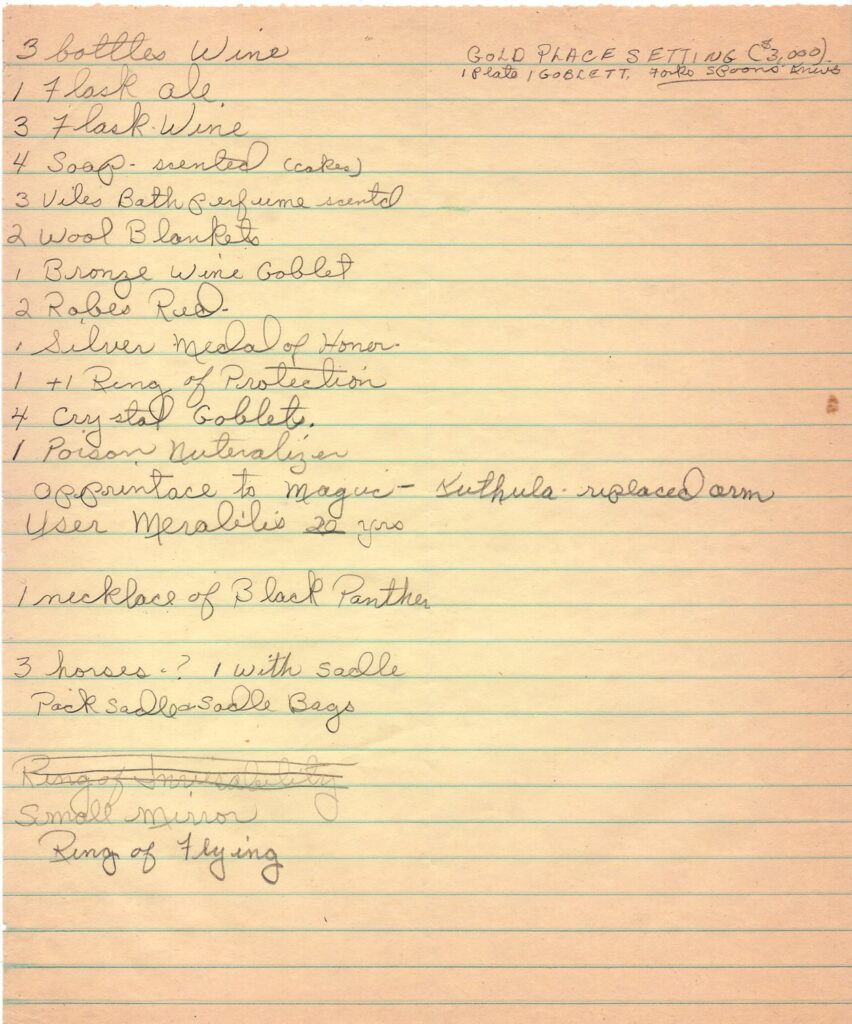 3 bottles Wine
GOLD PLACE SETTING ($3,000)
1 Plate 1 GOBLETT. Forks Spoons Knives
1 Flask ale
3 Flask Wine
4 Soap - scented (cakes)
3 Viles Bath perfume scentd
2 Wool Blankets
1 Bronze Wine Goblet
2 Robes Red.
1 Silver Medal of Honor.
1 +1 Ring of Protection
4 Crystal Goblets.
1 Poison Nuteralizer
apprintace to Magic - Kuthula replaced arm
User Meralilis 20 yrs
1 necklace of Black Panther
3 horses - ? 1 with sadle
Pack sadle & sadle Bags
Ring of Invisability
Small Mirror
Ring of Flying